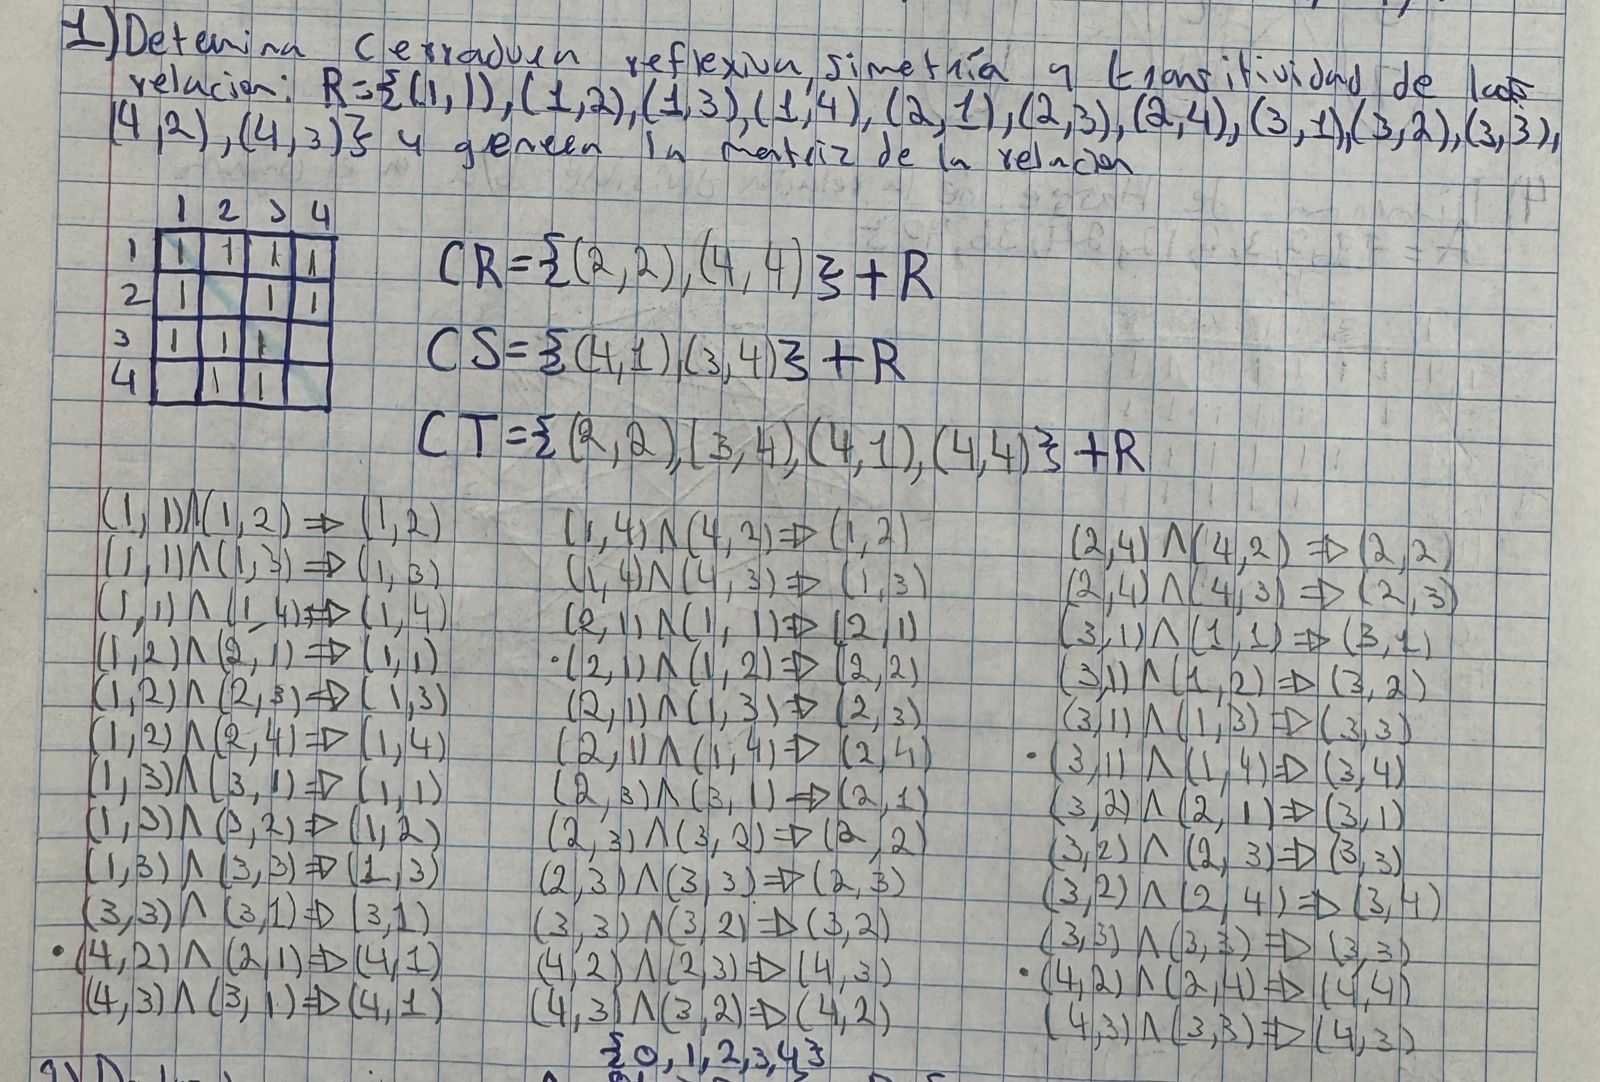 1) Detemina Cerradura reflexiva, simetría y transitividad de las
relacion: R={(1,1),(1,2),(1,3),(1,4),(2,1),(2,3),(2,4),(3,1),(3,2),(3,3),
(4,2),(4,3)} y generen la matriz de la relacion
1 2 3 4
1 1 1 1 1
2 1 1 1
3 1 1 1
4 1 1
CR={(2,2),(4,4)}+R
CS={(4,1),(3,4)}+R
CT={(2,2),(3,4),(4,1),(4,4)}+R
(1,1)∧(1,2)⇒(1,2)
(1,1)∧(1,3)⇒(1,3)
(1,1)∧(1,4)⇒(1,4)
(1,2)∧(2,1)⇒(1,1)
(1,2)∧(2,3)⇒(1,3)
(1,2)∧(2,4)⇒(1,4)
(1,3)∧(3,1)⇒(1,1)
(1,3)∧(3,2)⇒(1,2)
(1,3)∧(3,3)⇒(1,3)
(3,3)∧(3,1)⇒(3,1)
•(4,2)∧(2,1)⇒(4,1)
(4,3)∧(3,1)⇒(4,1)
(1,4)∧(4,2)⇒(1,2)
(1,4)∧(4,3)⇒(1,3)
(2,1)∧(1,1)⇒(2,1)
•(2,1)∧(1,2)⇒(2,2)
(2,1)∧(1,3)⇒(2,3)
(2,1)∧(1,4)⇒(2,4)
(2,3)∧(3,1)⇒(2,1)
(2,3)∧(3,2)⇒(2,2)
(2,3)∧(3,3)⇒(2,3)
(3,3)∧(3,2)⇒(3,2)
(4,2)∧(2,3)⇒(4,3)
(4,3)∧(3,2)⇒(4,2)
(2,4)∧(4,2)⇒(2,2)
(2,4)∧(4,3)⇒(2,3)
(3,1)∧(1,1)⇒(3,1)
(3,1)∧(1,2)⇒(3,2)
(3,1)∧(1,3)⇒(3,3)
•(3,1)∧(1,4)⇒(3,4)
(3,2)∧(2,1)⇒(3,1)
(3,2)∧(2,3)⇒(3,3)
(3,2)∧(2,4)⇒(3,4)
(3,3)∧(3,3)⇒(3,3)
•(4,2)∧(2,4)⇒(4,4)
(4,3)∧(3,3)⇒(4,3)
{0,1,2,3,4}